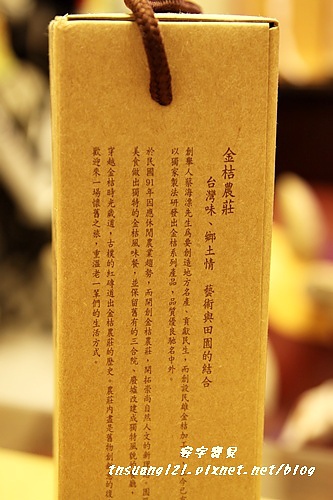 金桔農莊
台灣味 鄉土情 藝術與田園的結合
創舉人蔡海漂先生為要創造地方名產、貢獻民生，而創設民雄金桔加工
以獨家製法研發出金桔系列產品，品質優良馳名中外。
於民國91年因應休閒農業趨勢，而開創金桔農莊，開拓崇尚自然人文的新
美食做出獨特的金桔風味餐，並保留舊有的三合院、廢墟改建成獨特風貌
穿越金桔時光歲道，古樸的紅磚道出金桔農莊的歷史。農莊內盡是舊物創
歡迎來一場懷舊之旅，重溫老一輩們的生活方式。
容宇寶貝
tnsuang121.pixnet.net/blog